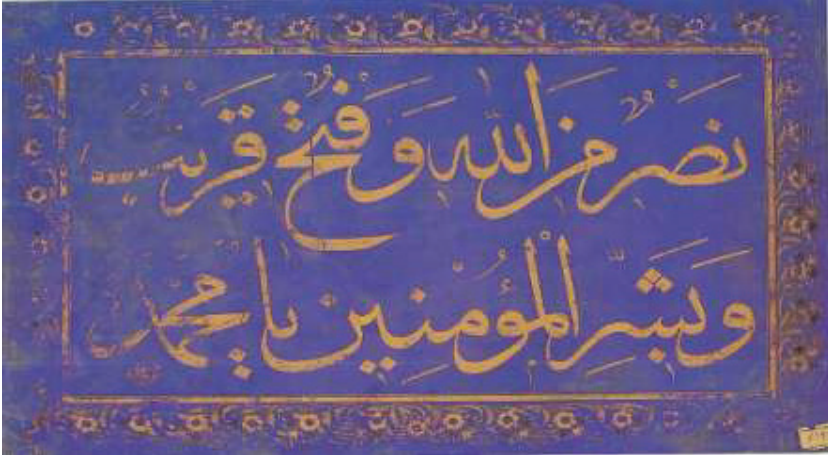 نَصْرٌ مِنَ اللّٰهِ وَفَتْحٌ قَرِيبٌ
وَبَشِّرِ الْمُؤْمِنِينَ يَا مُحَمَّد